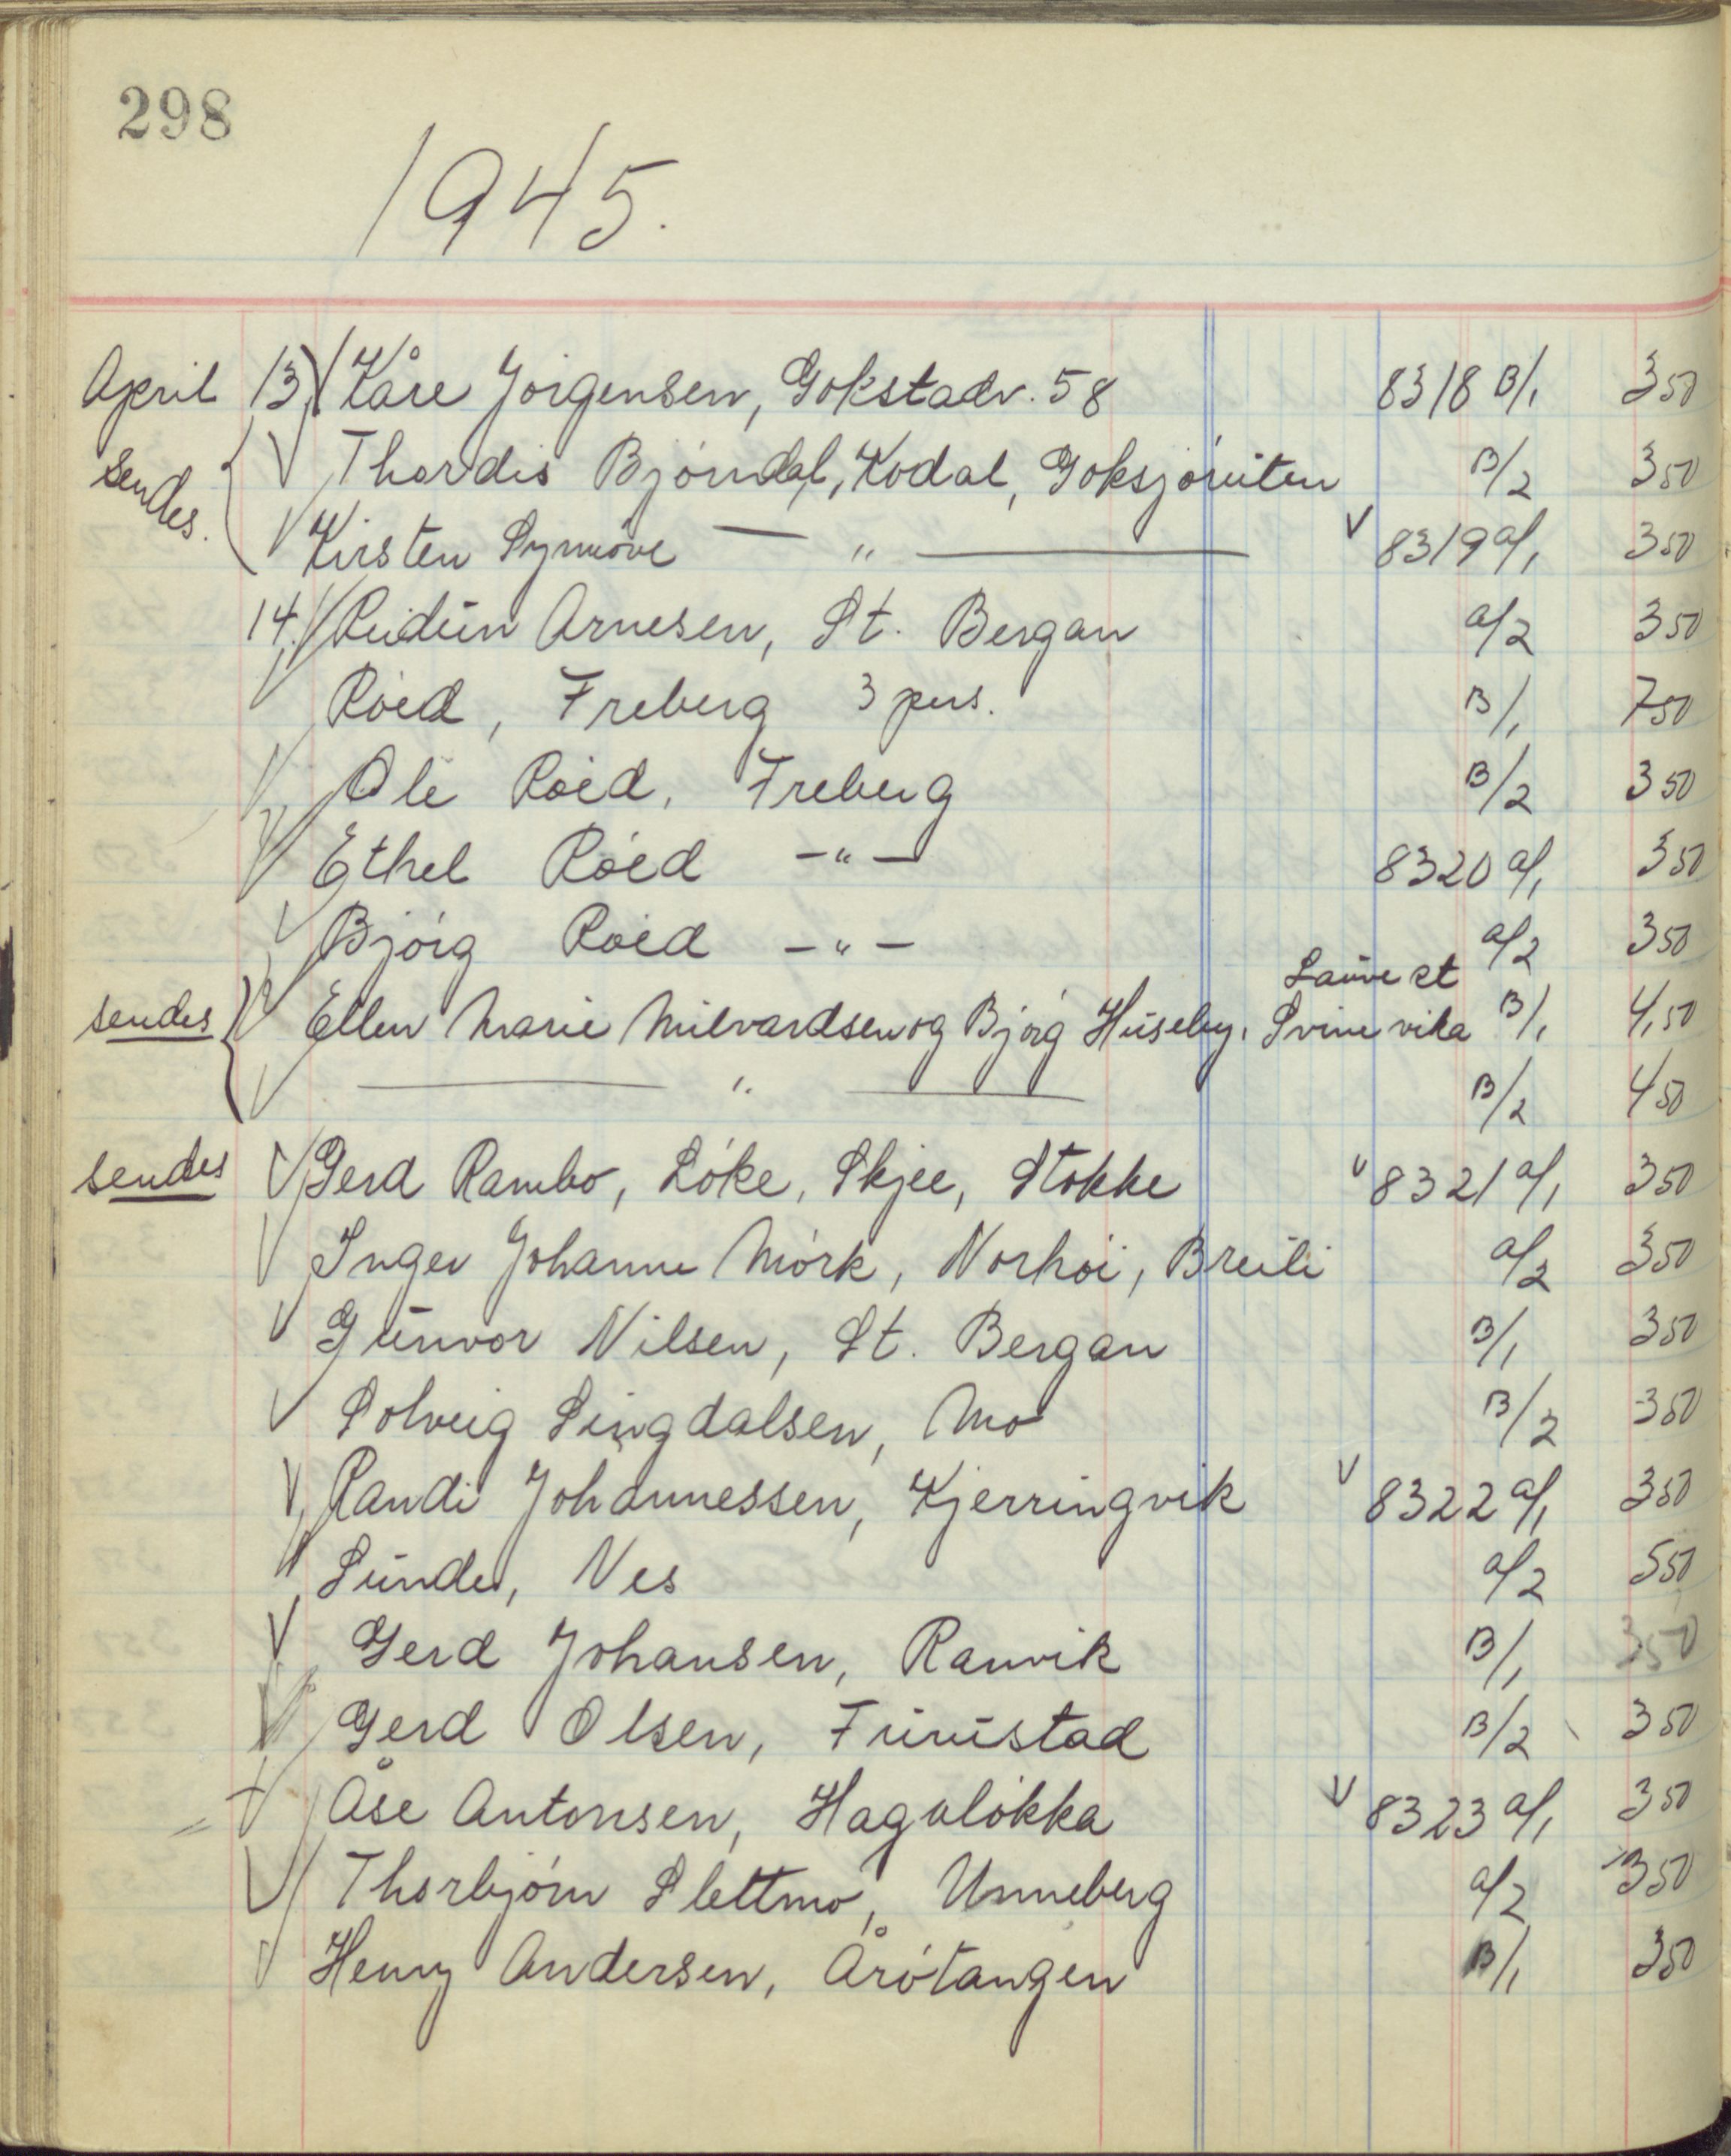 298
1945.
April 13. Kåre Jörgensen, Gokstadv. 58 8318 B/1 350
sendes. Thordis Björndal, Kodal, Goksjöruten B/2 350
Kirsten Synnöve — " — 8319 a/1 350
14. Reidun Arnesen, St. Bergan a/2 350
Röed, Freberg 3 pers. B/1 750
Ole Röed, Freberg B/2 350
Ethel Röed -"- 8320 a/1 350
Björg Röed -"- a/2 350
Lauve st
sendes Ellen Marie Milvardsen og Björg Huseby, Svinevika B/1 4,50
— " — B/2 450
sendes Gerd Rambo, Löke, Skjee, Stokke 8321 a/1 350
Inger Johanne Mörk, Norhöi, Breili a/2 350
Gunvor Nilsen, St. Bergan B/1 350
Solveig Lingdalsen, Mo B/2 350
Randi Johannessen, Kjerringvik 8322 a/1 350
Sunde, Nes a/2 550
Gerd Johansen, Ranvik B/1 350
Gerd Olsen, Furustad B/2 350
Åse Antonsen, Hagalökka 8323 a/1 350
Thorbjörn Slettmo, Unneberg a/2 350
Henry Andersen, Årötangen B/1 350